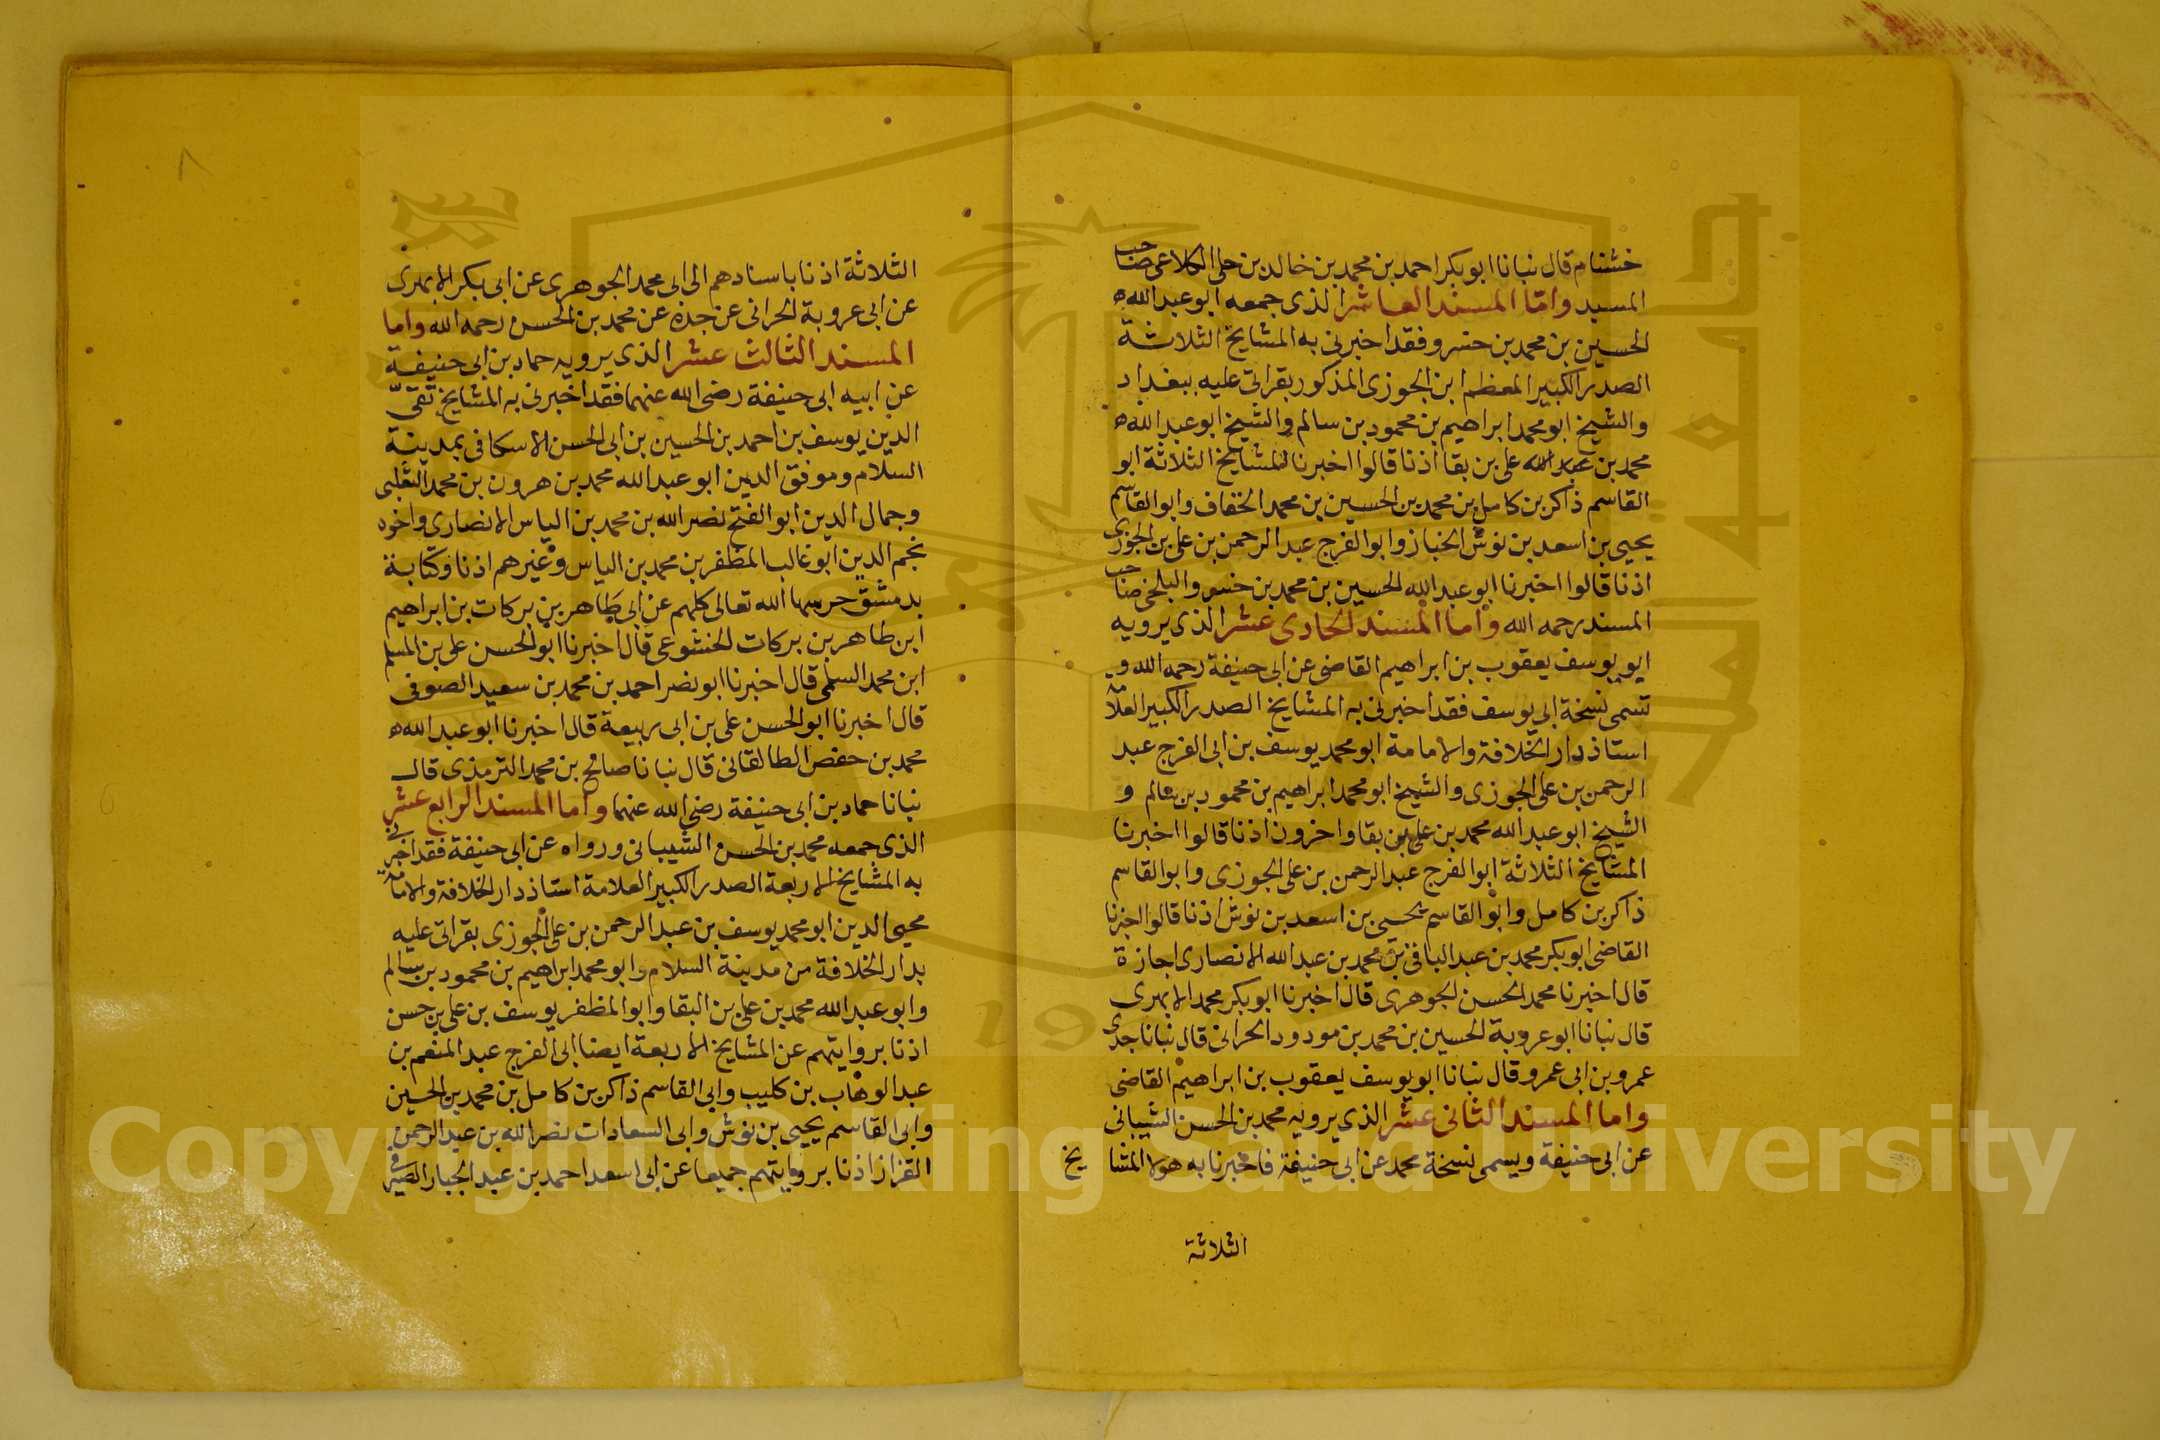 خشنام قال نبانا ابو بكر احمد بن محمد بن خالد بن حلى الكلاعى صاحب
المسند واما المسند العاشر الذى جمعه ابو عبد الله
الحسين بن محمد بن خسرو فقد اخبرنى به المشايخ الثلاثة
الصدر الكبير المعظم ابن الجوزى المذكور بقراتى عليه ببغداد
والشيخ ابو محمد ابراهيم بن محمود بن سالم والشيخ ابو عبد الله
محمد بن على بن بقا اذنا قالوا اخبرنا المشايخ الثلاثة ابو
القاسم ذاكر بن كامل بن محمد بن الحسين بن محمد الخفاف وابو القاسم
يحيى بن اسعد بن نوش الخباز وابو الفرج عبد الرحمن بن على بن الجوزى
اذنا قالوا اخبرنا ابو عبد الله الحسين بن محمد بن خسرو البلخى صاحب
المسند رحمه الله واما المسند الحادى عشر الذى يرويه
ابو يوسف يعقوب بن ابراهيم القاضى عن ابى حنيفة رحمه الله و
تسمى نسخة ابى يوسف فقد اخبرنى به المشايخ الصدر الكبير العلامة
استاذ دار الخلافة والامامة ابو محمد يوسف بن ابى الفرج عبد
الرحمن بن على الجوزى والشيخ ابو محمد ابراهيم بن محمود بن سالم و
الشيخ ابو عبد الله محمد بن على بن بقا واخرون اذنا قالوا اخبرنا
المشايخ الثلاثة ابو الفرج عبد الرحمن بن على الجوزى وابو القاسم
ذاكر بن كامل وابو القاسم يحيى بن اسعد بن نوش اذنا قالوا اخبرنا
القاضى ابو بكر محمد بن عبد الباقى بن محمد بن عبد الله الانصارى اجازة
قال اخبرنا محمد الحسن الجوهرى قال اخبرنا ابو بكر محمد الابهرى
قال نبانا ابو عروبة الحسين بن محمد بن مودود الحرانى قال نبانا جدى
عمرو بن ابى عمرو قال نبانا ابو يوسف يعقوب بن ابراهيم القاضى
واما المسند الثانى عشر الذى يرويه محمد بن الحسن الشيبانى
عن ابى حنيفة ويسمى نسخة محمد عن ابى حنيفة فاخبرنا به هولا المشايخ
الثلاثة
٨
الثلاثة اذنا باسنادهم الى ابى محمد الجوهرى عن ابى بكر الابهرى
عن ابى عروبة الحرانى عن جده عن محمد بن الحسن رحمه الله واما
المسند الثالث عشر الذى يرويه حماد بن ابى حنيفة
عن ابيه ابى حنيفة رضى الله عنهما فقد اخبرنى به المشايخ تقى
الدين يوسف بن احمد بن الحسين بن ابى الحسن الاسكافى بمدينة
السلام وموفق الدين ابو عبد الله محمد بن هرون بن محمد الثعلبى
وجمال الدين ابو الفتح نصر الله بن محمد بن الياس الانصارى واخوه
نجم الدين ابو غالب المظفر بن محمد بن الياس وغيرهم اذنا وكتابة
بدمشق حرسها الله تعالى كلهم عن ابى طاهر بن بركات بن ابراهيم
ابن طاهر بن بركات الخشوعى قال اخبرنا ابو الحسن على بن المسلم
ابن محمد السلمى قال اخبرنا ابو نصر احمد بن محمد بن سعيد الصوفى
قال اخبرنا ابو الحسن على بن ابى ربيعة قال اخبرنا ابو عبد الله
محمد بن حفص الطالقانى قال نبانا صالح بن محمد الترمذى قال
نبانا حماد بن ابى حنيفة رضى الله عنهما واما المسند الرابع عشر
الذى جمعه محمد بن الحسن الشيبانى ورواه عن ابى حنيفة فقد اخبرنى
به المشايخ الاربعة الصدر الكبير العلامة استاذ دار الخلافة والامامة
محيى الدين ابو محمد يوسف بن عبد الرحمن بن على الجوزى بقراتى عليه
بدار الخلافة من مدينة السلام وابو محمد ابراهيم بن محمود بن سالم
وابو عبد الله محمد بن على بن البقا وابو المظفر يوسف بن على بن حسن
اذنا بروايتهم عن المشايخ الاربعة ايضا ابى الفرج عبد المنعم بن
عبد الوهاب بن كليب وابى القاسم ذاكر بن كامل بن محمد بن الحسين
وابى القاسم يحيى بن نوش وابى السعادات نصر الله بن عبد الرحمن
القزاز اذنا بروايتهم جميعا عن ابى اسعد احمد بن عبد الجبار الصيرفى
جامعة الملك
19
Copyright © King Saud University